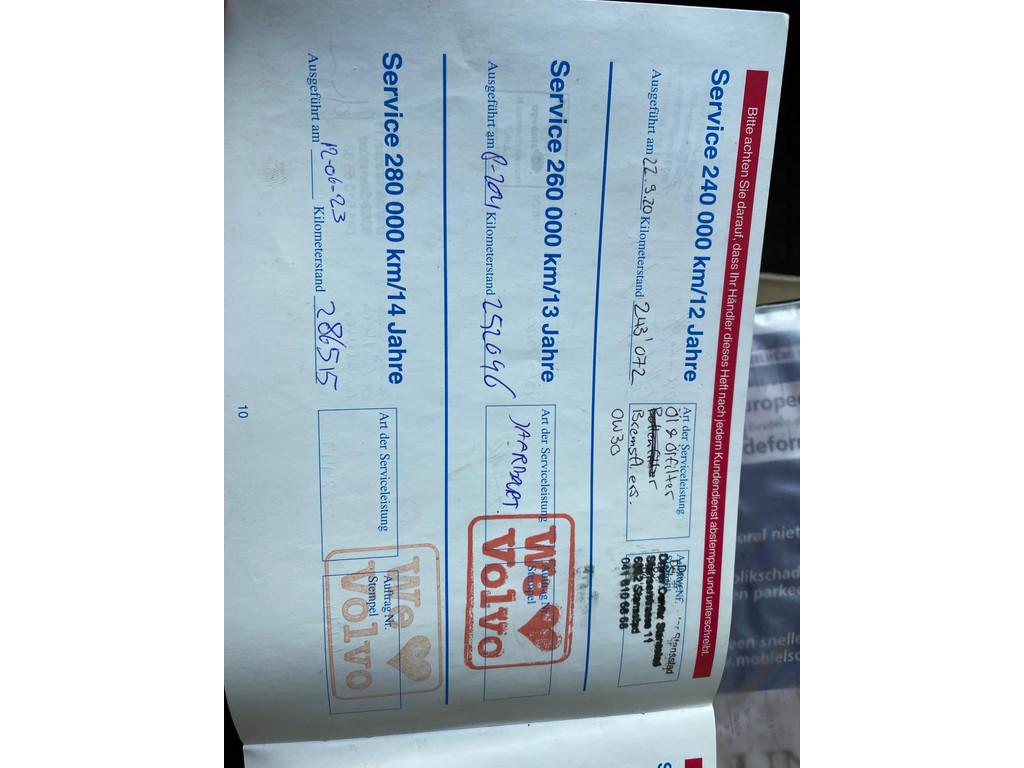 Bitte achten Sie darauf, dass Ihr Händler dieses Heft nach jedem Kundendienst abstempelt und unterschreibt.
Service 240 000 km/12 Jahre
Ausgeführt am 22.9.20 Kilometerstand 243'072
Art der Serviceleistung
Öl & Ölfilter
Bremsfl. ers.
0W30
Stansstad
Drive Center Stansstad
Stanserstrasse 11
6362 Stansstad
041 610 66 66
Service 260 000 km/13 Jahre
Ausgeführt am Kilometerstand 252096
Art der Serviceleistung
Auftrag Nr.
Stempel
We ♥
Volvo
Service 280 000 km/14 Jahre
Ausgeführt am 12-06-23 Kilometerstand 286515
Art der Serviceleistung
Auftrag Nr.
Stempel
We ♥
Volvo
10
oral niet
en snelle